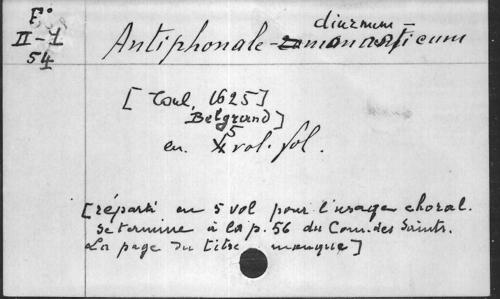 F°
II-1
54
diurnum
Antiphonale-monasticum
[Toul, 1625]
Belgrand]
en 5 vol. fol.
[réparti en 5 vol pour l'usage choral.
se termine à la p. 56 du Com. des Saints.
La page du titre manque]